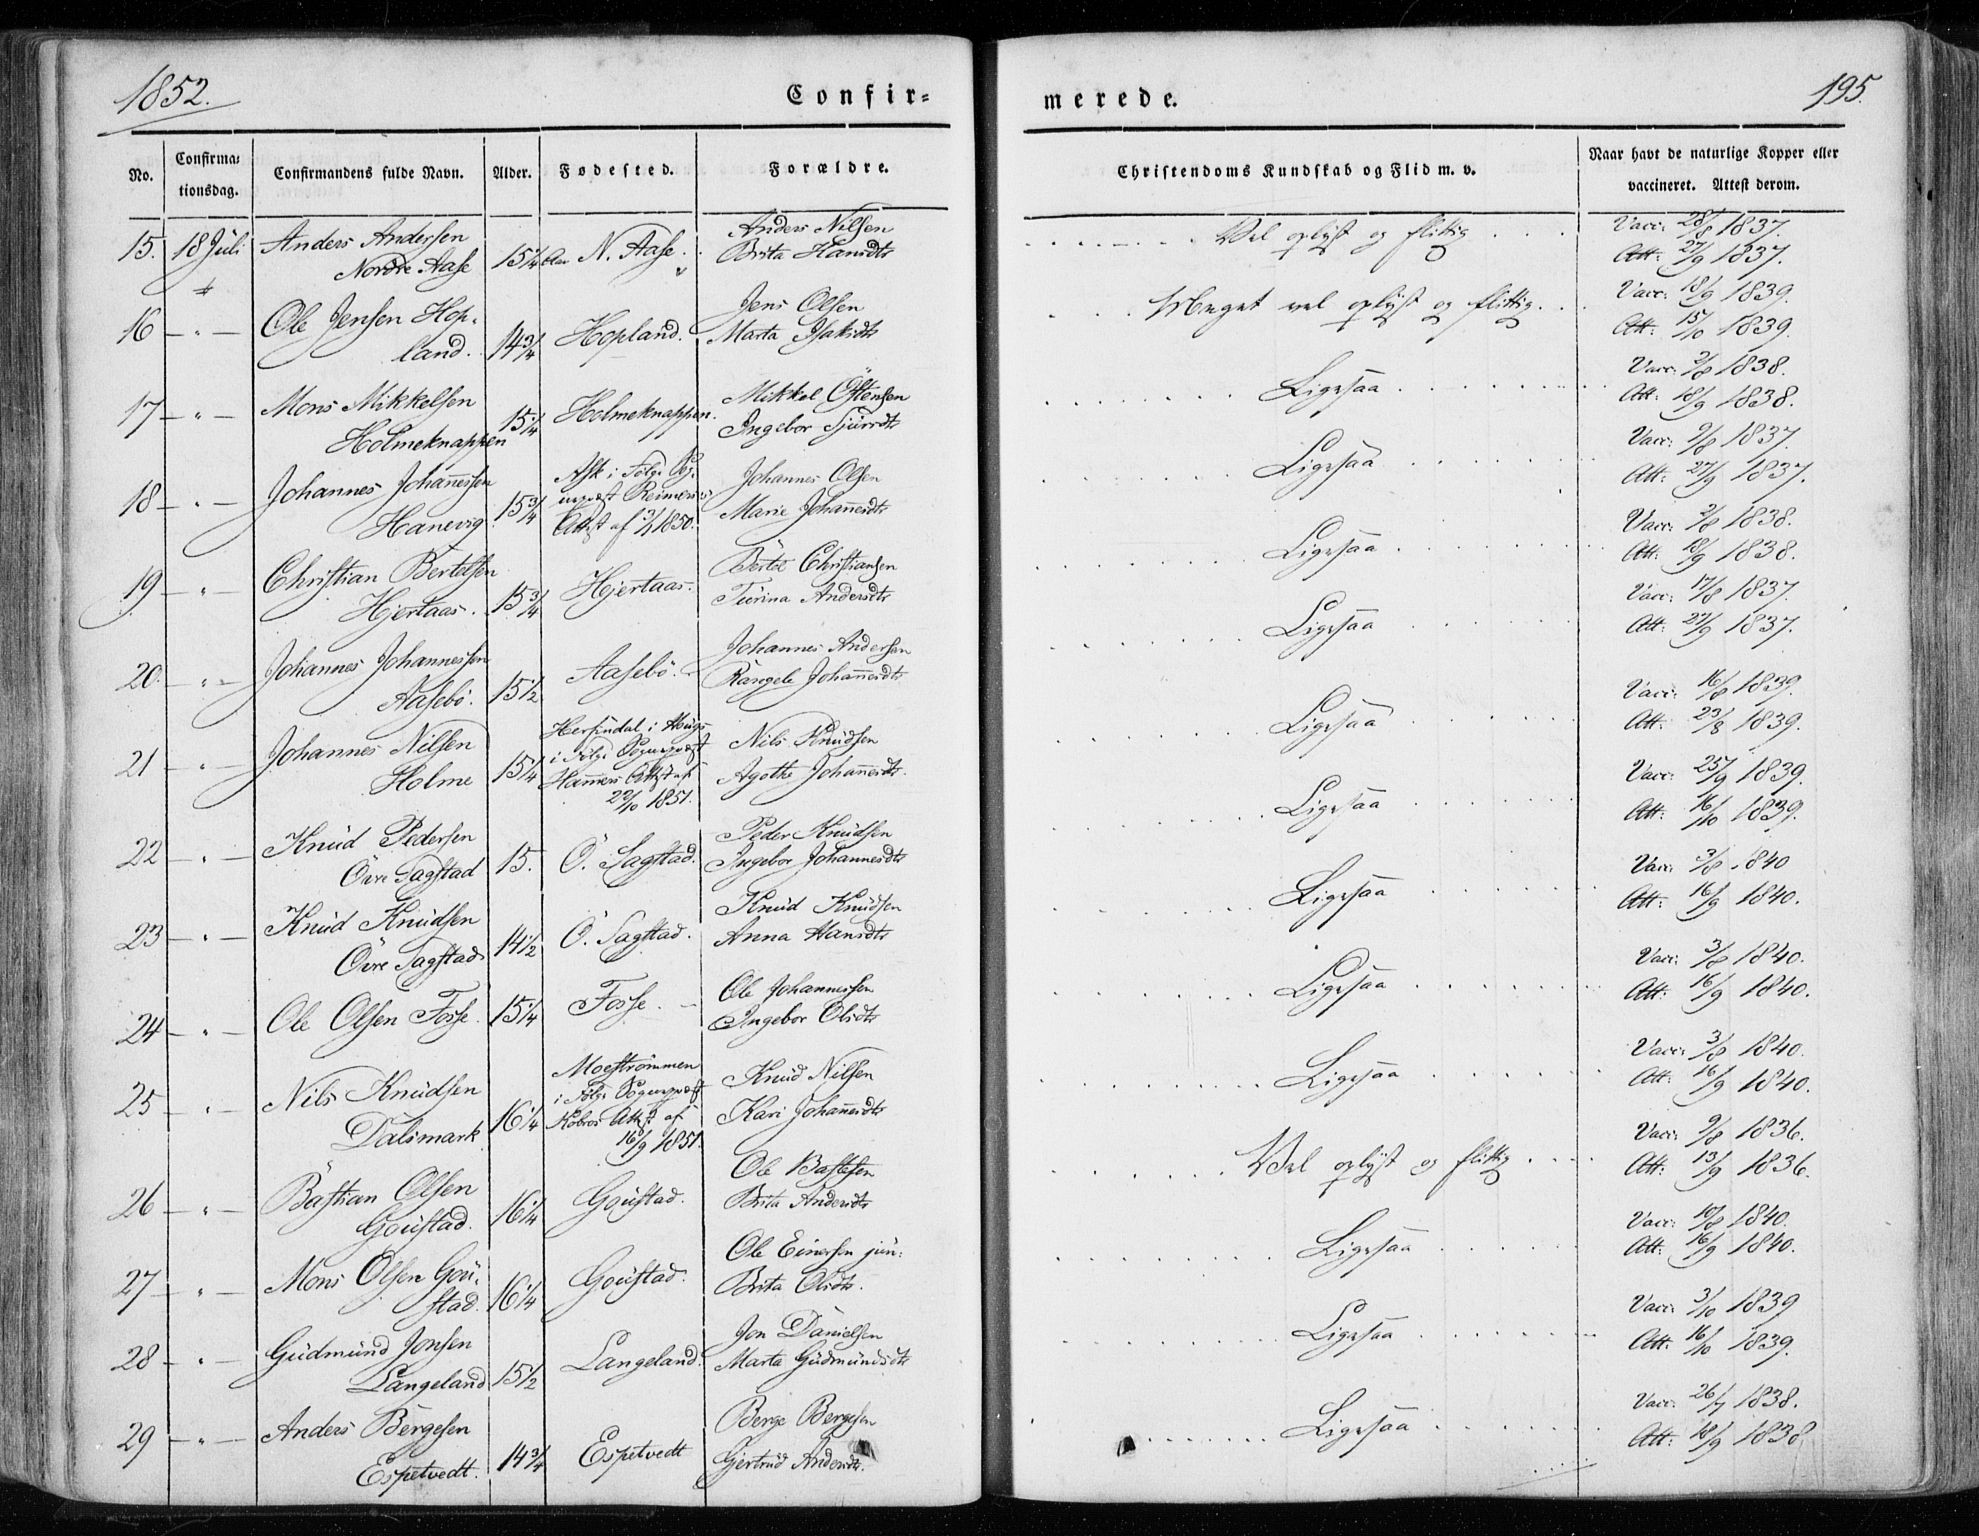 1852.
Confir=
merede.
195.
No.
Confirma=
tionsdag.
Confirmandens fulde Navn.
Alder.
Fødested.
Forældre.
Christendoms Kundskab og Flid m. v.
Naar havt de naturlige Kopper eller
vaccineret. Attest derom.
15. 18 Juli Anders Andersen
Nordre Aase 15 1/4 N. Aase. Anders Nilsen
Brita Hansdtr
Vel oplyst og flittig
Vacc: 28/8 1837.
Att: 27/9 1837.
16 – " – Ole Jensen Hop-
land. 14 3/4 Hopland. Jens Olsen
Marta Isaksdtr
Meget vel oplyst og flittig.
Vacc: 18/9 1839.
Att: 15/10 1839.
17 – " – Mons Mikkelsen
Holmeknappen 15 1/4 Holmeknappen. Mikkel Östensen
Ingebor Sjurdtr
Ligesaa
Vacc: 2/8 1838.
Att: 18/9 1838.
18 – " – Johannes Johanessen
Hanevig 15 3/4 Ask i Følge Sog-
nepræst Reimers's
Attest af 3/1 1850. Johannes Olsen
Marie Johanesdtr
Ligesaa
Vacc: 9/8 1837.
Att: 27/9 1837.
19 – " – Christian Bertelsen
Hjertaas. 15 3/4 Hjertaas. Bertel Christiansen
Turina Andersdtr
Ligesaa
Vacc: 2/8 1838.
Att: 18/9 1838.
20. – " – Johannes Johannessen
Aasebö. 15 1/2 Aasebö. Johannes Andersen
Rangele Johanesdtr
Ligesaa
Vacc: 17/8 1837.
Att: 27/9 1837.
21 – " – Johannes Nilsen
Holme 15 1/4 Herfindal i Hougs
i Følge Sognepræst
Hammers Attest af
29/10 1851. Nils Knudsen
Agothe Johanesdtr.
Ligesaa
Vacc: 16/8 1839.
Att: 23/8 1839.
22 – " – Knud Pedersen
Övre Sagstad 15. Ö. Sagstad. Peder Knudsen
Ingebor Johannesdtr
Ligesaa
Vacc: 25/9 1839.
Att: 16/10 1839.
23 – " – Knud Knudsen
Övre Sagstad 14 1/2 Ö. Sagstad. Knud Knudsen
Anna Hansdtr
Ligesaa
Vacc: 3/8 1840
Att: 16/9 1840.
24 – " – Ole Olsen Fosse 15 1/4 Fosse. Ole Johannessen
Ingebor Olsdtr
Ligesaa
Vacc: 3/8 1840.
Att: 16/9 1840.
25 – " – Nils Knudsen
Dalsmark 16 1/4 Moestrømmen
i Følge Sognepræst
Kobros Attest af
16/9 1851. Knud Nilsen
Kari Johanesdtr
Ligesaa
Vacc: 3/8 1840.
Att: 16/9 1840.
26 – " – Bastian Olsen
Goustad. 16 1/4 Goustad. Ole Bastesen
Brita Andersdtr
Vel oplyst og flittig
Vacc: 9/8 1836.
Att: 13/9 1836.
27 – " – Mons Olsen Gou-
stad. 16 1/4 Goustad. Ole Einersen jun:
Brita Olsdtr.
Ligesaa
Vacc: 10/8 1840.
Att: 16/9 1840.
28 – " – Gudmund Jonsen
Langeland 15 1/2 Langeland. Jon Danielsen
Marta Gudmundsdtr
Ligesaa
Vacc: 3/10 1839
Att: 16/10 1839.
29 – " – Anders Bergesen
Espetvedt. 14 3/4 Espetvedt Berge Bergesen
Gjertrud Andersdtr.
Ligesaa
Vacc: 26/7 1838.
Att: 18/9 1838